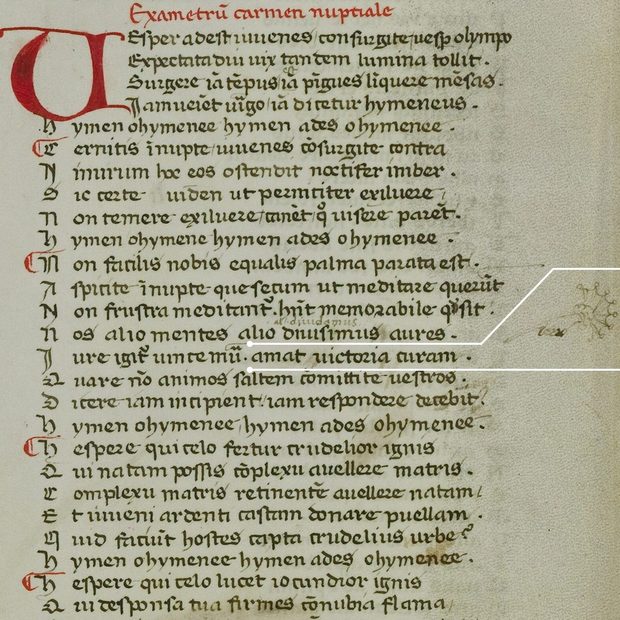 Exametrū carmen nuptiale
Vesper adest iuuenes consurgite uesp olympo
Expectata diu uix tandem lumina tollit.
Surgere iā tēpus iā pīgues liquere mēsas.
Iam ueiet uirgo iā dicetur hymeneus.
Hymen ohymenee hymen ades ohymenee.
Cernitis īnupte iuuenes cōsurgite contra
Nimirum hoc eos ostendit noctifer imber.
Sic certe uiden ut perniciter exiluere
Non temere exiluere canēt q̄ uisere parēt.
Hymen ohymene hymen ades ohymenee.
Non facilis nobis equalis palma parata est.
Aspicite īnupte que secum ut meditare querūt
Non frustra meditant. hn̄t memorabile qd sit.
al diuidamus
Nos alio mentes alio diuisimus aures.
Iure igit uincemur. amat uictoria curam.
Quare nō animos saltem cōmittite uestros.
Dicere iam incipient iam respondere decebit.
Hymen ohymenee hymen ades ohymenee.
Hespere qui celo fertur crudelior ignis
Qui natam possis cōplexu auellere matris.
Complexu matris retinentē auellere natam
Et iuueni ardenti castam donare puellam.
Quid faciūt hostes capta crudelius urbe?
Hymen ohymenee hymen ades ohymenee.
Hespere qui celo lucet iocundior ignis
Qui desponsa tua firmes cōnubia flama